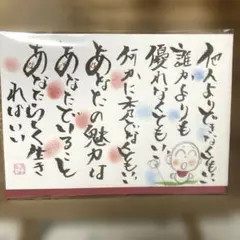 他人よりできなくてもいい
誰かよりも
優れなくてもいい
何かに秀でなくてもいい
あなたの魅力は
あなたでいること
あなたらしく生き
ればいい